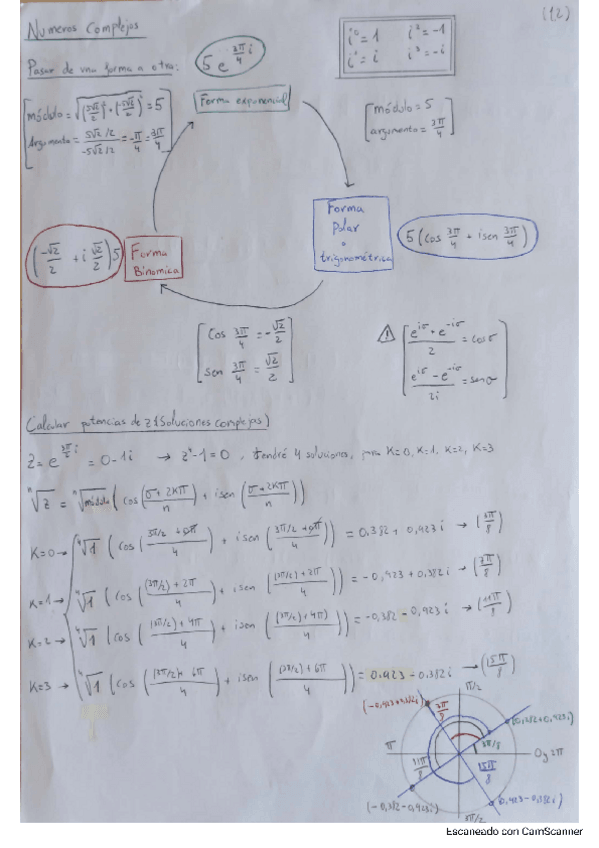 (12)
Numeros Complejos
i⁰=1 i²=-1
i¹=i i³=-i
Pasar de una forma a otra:
5 e^(3π/4 i)
Forma exponencial
módulo = √((5√2/2)² + (-5√2/2)²) = 5
Argumento = (5√2/2)/(-5√2/2) = -π/4 = 3π/4
módulo = 5
argumento = 3π/4
Forma
Polar
o
trigonométrica
5 (cos 3π/4 + i sen 3π/4)
(-√2/2 + i √2/2) 5
Forma
Binomica
Cos 3π/4 = -√2/2
sen 3π/4 = √2/2
(e^(iσ) + e^(-iσ))/2 = cos σ
(e^(iσ) - e^(-iσ))/2i = sen σ
Calcular potencias de z (Soluciones complejas)
Z = e^(3π/2 i) = 0-1i → z⁴-1=0, tendré 4 soluciones, para K=0, K=1, K=2, K=3
ⁿ√z = ⁿ√módulo (cos((σ+2Kπ)/n) + i sen((σ+2Kπ)/n))
K=0 → ⁴√1 (cos((3π/2 + 0π)/4) + i sen((3π/2 + 0π)/4)) = 0,382 + 0,923i → (3π/8)
K=1 → ⁴√1 (cos(((3π/2) + 2π)/4) + i sen(((3π/2) + 2π)/4)) = -0,923 + 0,382i → (7π/8)
K=2 → ⁴√1 (cos(((3π/2) + 4π)/4) + i sen(((3π/2) + 4π)/4)) = -0,382 - 0,923i → (11π/8)
K=3 → ⁴√1 (cos(((3π/2) + 6π)/4) + i sen(((3π/2) + 6π)/4)) = 0,923 - 0,382i → (15π/8)
π/2
(-0,923+0,382i)
7π/8
(0,382+0,923i)
3π/8
π
0 y 2π
11π/8
15π/8
(-0,382-0,923i)
(0,923-0,382i)
3π/2
Escaneado con CamScanner